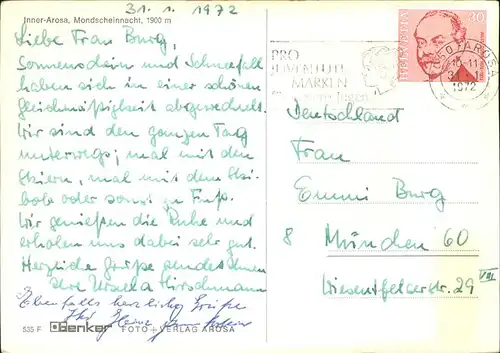 31. 1. 1972
Inner-Arosa, Mondscheinnacht, 1900 m
Liebe Frau Burg,
Sonnenschein und Schneefall
haben sich in einer schönen
Gleichmäßigkeit abgewechselt.
Wir sind den ganzen Tag
unterwegs; mal mit den
Skiern, mal mit dem Ski-
bob oder sonst zu Fuß.
Wir genießen die Ruhe und
erholen uns dabei sehr gut.
Herzliche Grüße sendet Ihnen
Ihre Ursula Hirschmann
Ebenfalls herzliche Grüße
Ihr Heinz
535 F Genker FOTO + VERLAG AROSA
PRO
JUVENTUTE
MARKEN
HELVETIA 30
7050 AROSA
1972
Deutschland
Frau
Emmi Burg
8 München 60
Wiesentfelserstr. 29 VIII